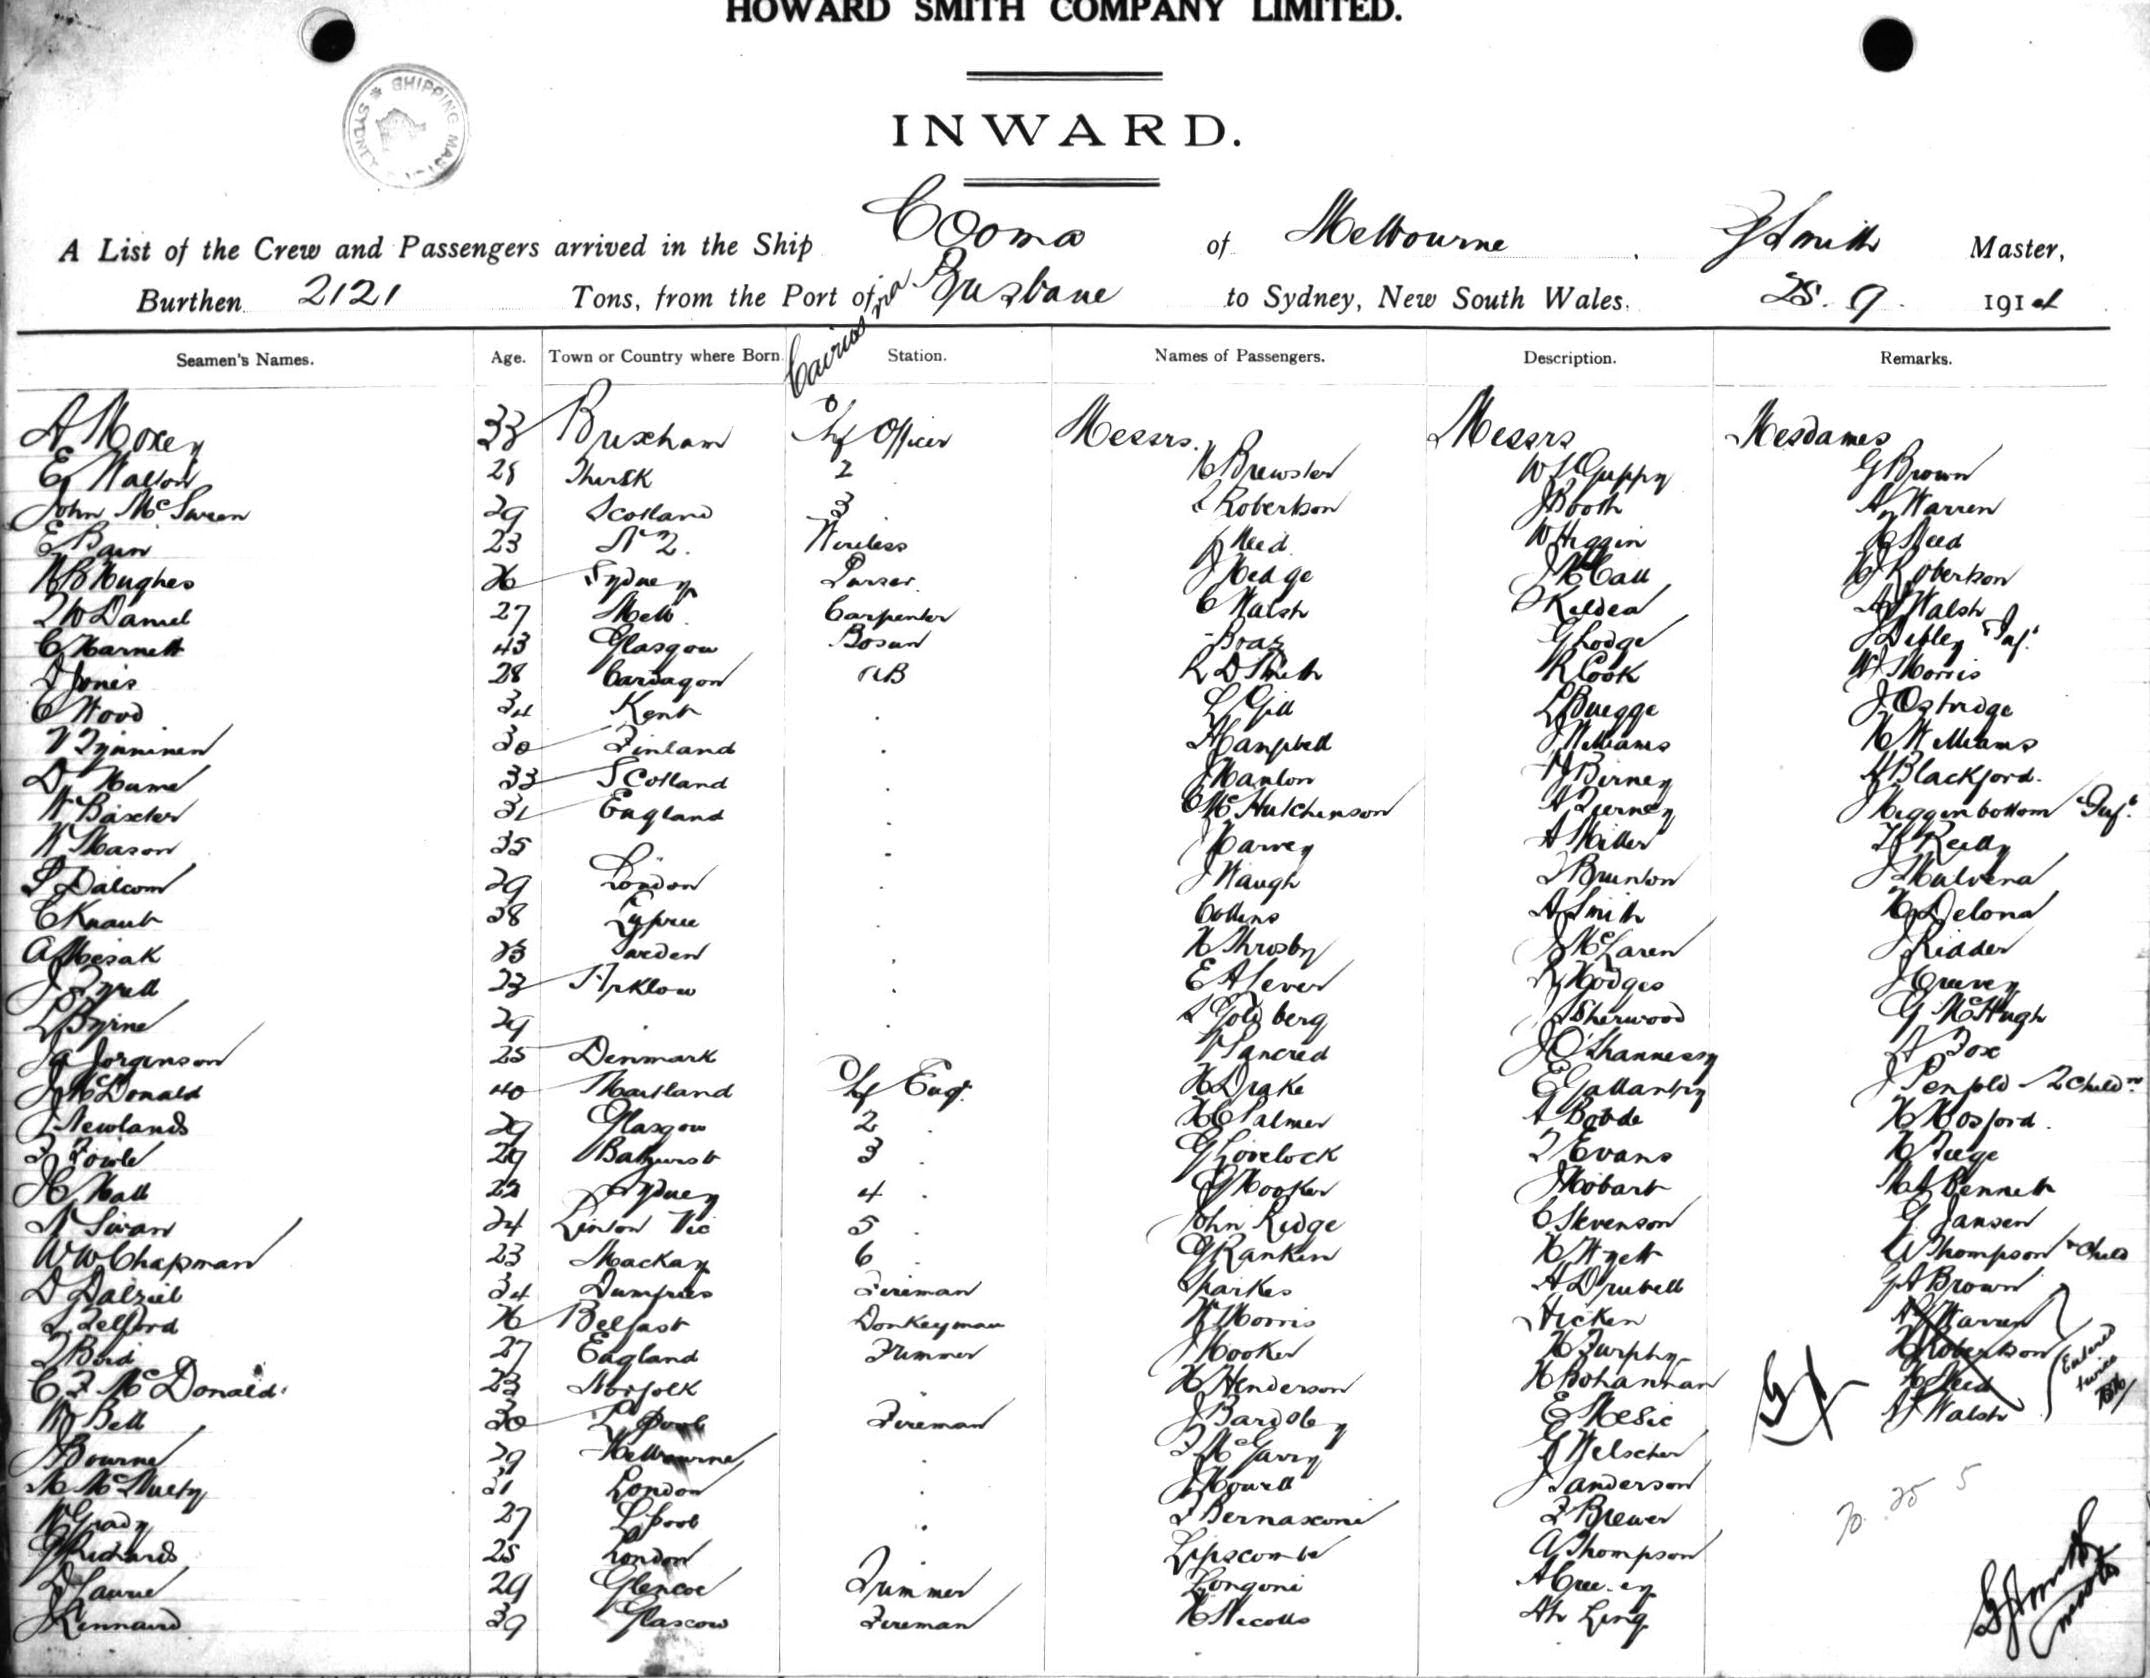 HOWARD SMITH COMPANY LIMITED.
SHIPPING MASTER SYDNEY
INWARD.
A List of the Crew and Passengers arrived in the Ship Cooma of Melbourne, J Smith Master,
Burthen 2121 Tons, from the Port of Cairns via Brisbane to Sydney, New South Wales. 25. 9. 1914
Seamen's Names. Age. Town or Country where Born. Station. Names of Passengers. Description. Remarks.
A Moxey 33 Brixham Chf Officer Messrs. Messrs Mesdames
E Walton 28 Thirsk 2 H Brewster W S Guppy G Brown
John McSween 29 Scotland 3 Robertson J Booth A Warren
E Bain 23 N Z. Wireless Reid W Higgin Reed
Hughes 26 Sydney Purser. J Hedge J McCall H Robertson
Daniel 27 Melb Carpenter C Walsh Kildea A J Walsh
C Harnett 43 Glasgow Bosun Boaz G Lodge Sibley "Inf"
D Jones 28 Cardagon AB R D Smith R Cook W J Morris
C Wood 34 Kent L Gill L Buegge J Ostridge
V Tynninen 30 Finland Campbell J Williams H Williams
D Hume 33 Scotland J Hanlon Birney A Blackford.
W Baxter 31 England McHutchinson A Tierney Higginbottom "Inf"
W Mason 35 J Harvey A Miller Reilly
Dalcom 29 London J Waugh T Brunton J Mulvena
C Knaut 38 Collins A Smith H Delona
A Mesak 23 Sweden H Throsby J McLaren J Ridder
J Tyrell 23 Arklow E A Lever R Hodges J Creevey
L Byrne 29 S Goldberg J Sherwood G McHugh
Jorgenson 25 Denmark Tancred J O'Shannessy A Fox
J McDonald 40 Maitland Chf Eng. H Drake E Gallantry J Penfold & 2 Childn.
J Newlands 29 Glasgow 2 H C Palmer A Bobde H Hosford.
F Fowle 29 Bathurst 3 G Lovelock T Evans H Tiege
H Hall 22 Sydney 4 G Hooker J Hobart Bennett
N Swan 24 Linton Vic 5 John Ridge C Stevenson G Jansen
W W Chapman 23 Mackay 6 G Rankin H Wyett A Thompson & Child
D Dalziel 34 Dumfries Fireman Sparkes A Druvell G A Brown
Telford 26 Belfast Donkeyman W Morris Hicken A Warren
T Boid 27 England Trimmer J Hooker H Furphy H Robertson
C F McDonald 23 Norfolk H Henderson H Bohannan H Reed
W Bell 30 L'pool Fireman J Bardsley E Mesic A J Walsh
Entered twice
J Bourne 29 Melbourne T McGarry J Welscher
M McNulty 31 London J Howell J Sanderson
W Grady 27 L'pool F Bernasconi F Brewer
G Richards 25 London Lipscombe A Thompson
D Laurie 29 Glencoe Trimmer Longoni
J Kinnaird 39 Glascow Fireman H Nicolls Ah Ling
70 25 5
J Smith
master